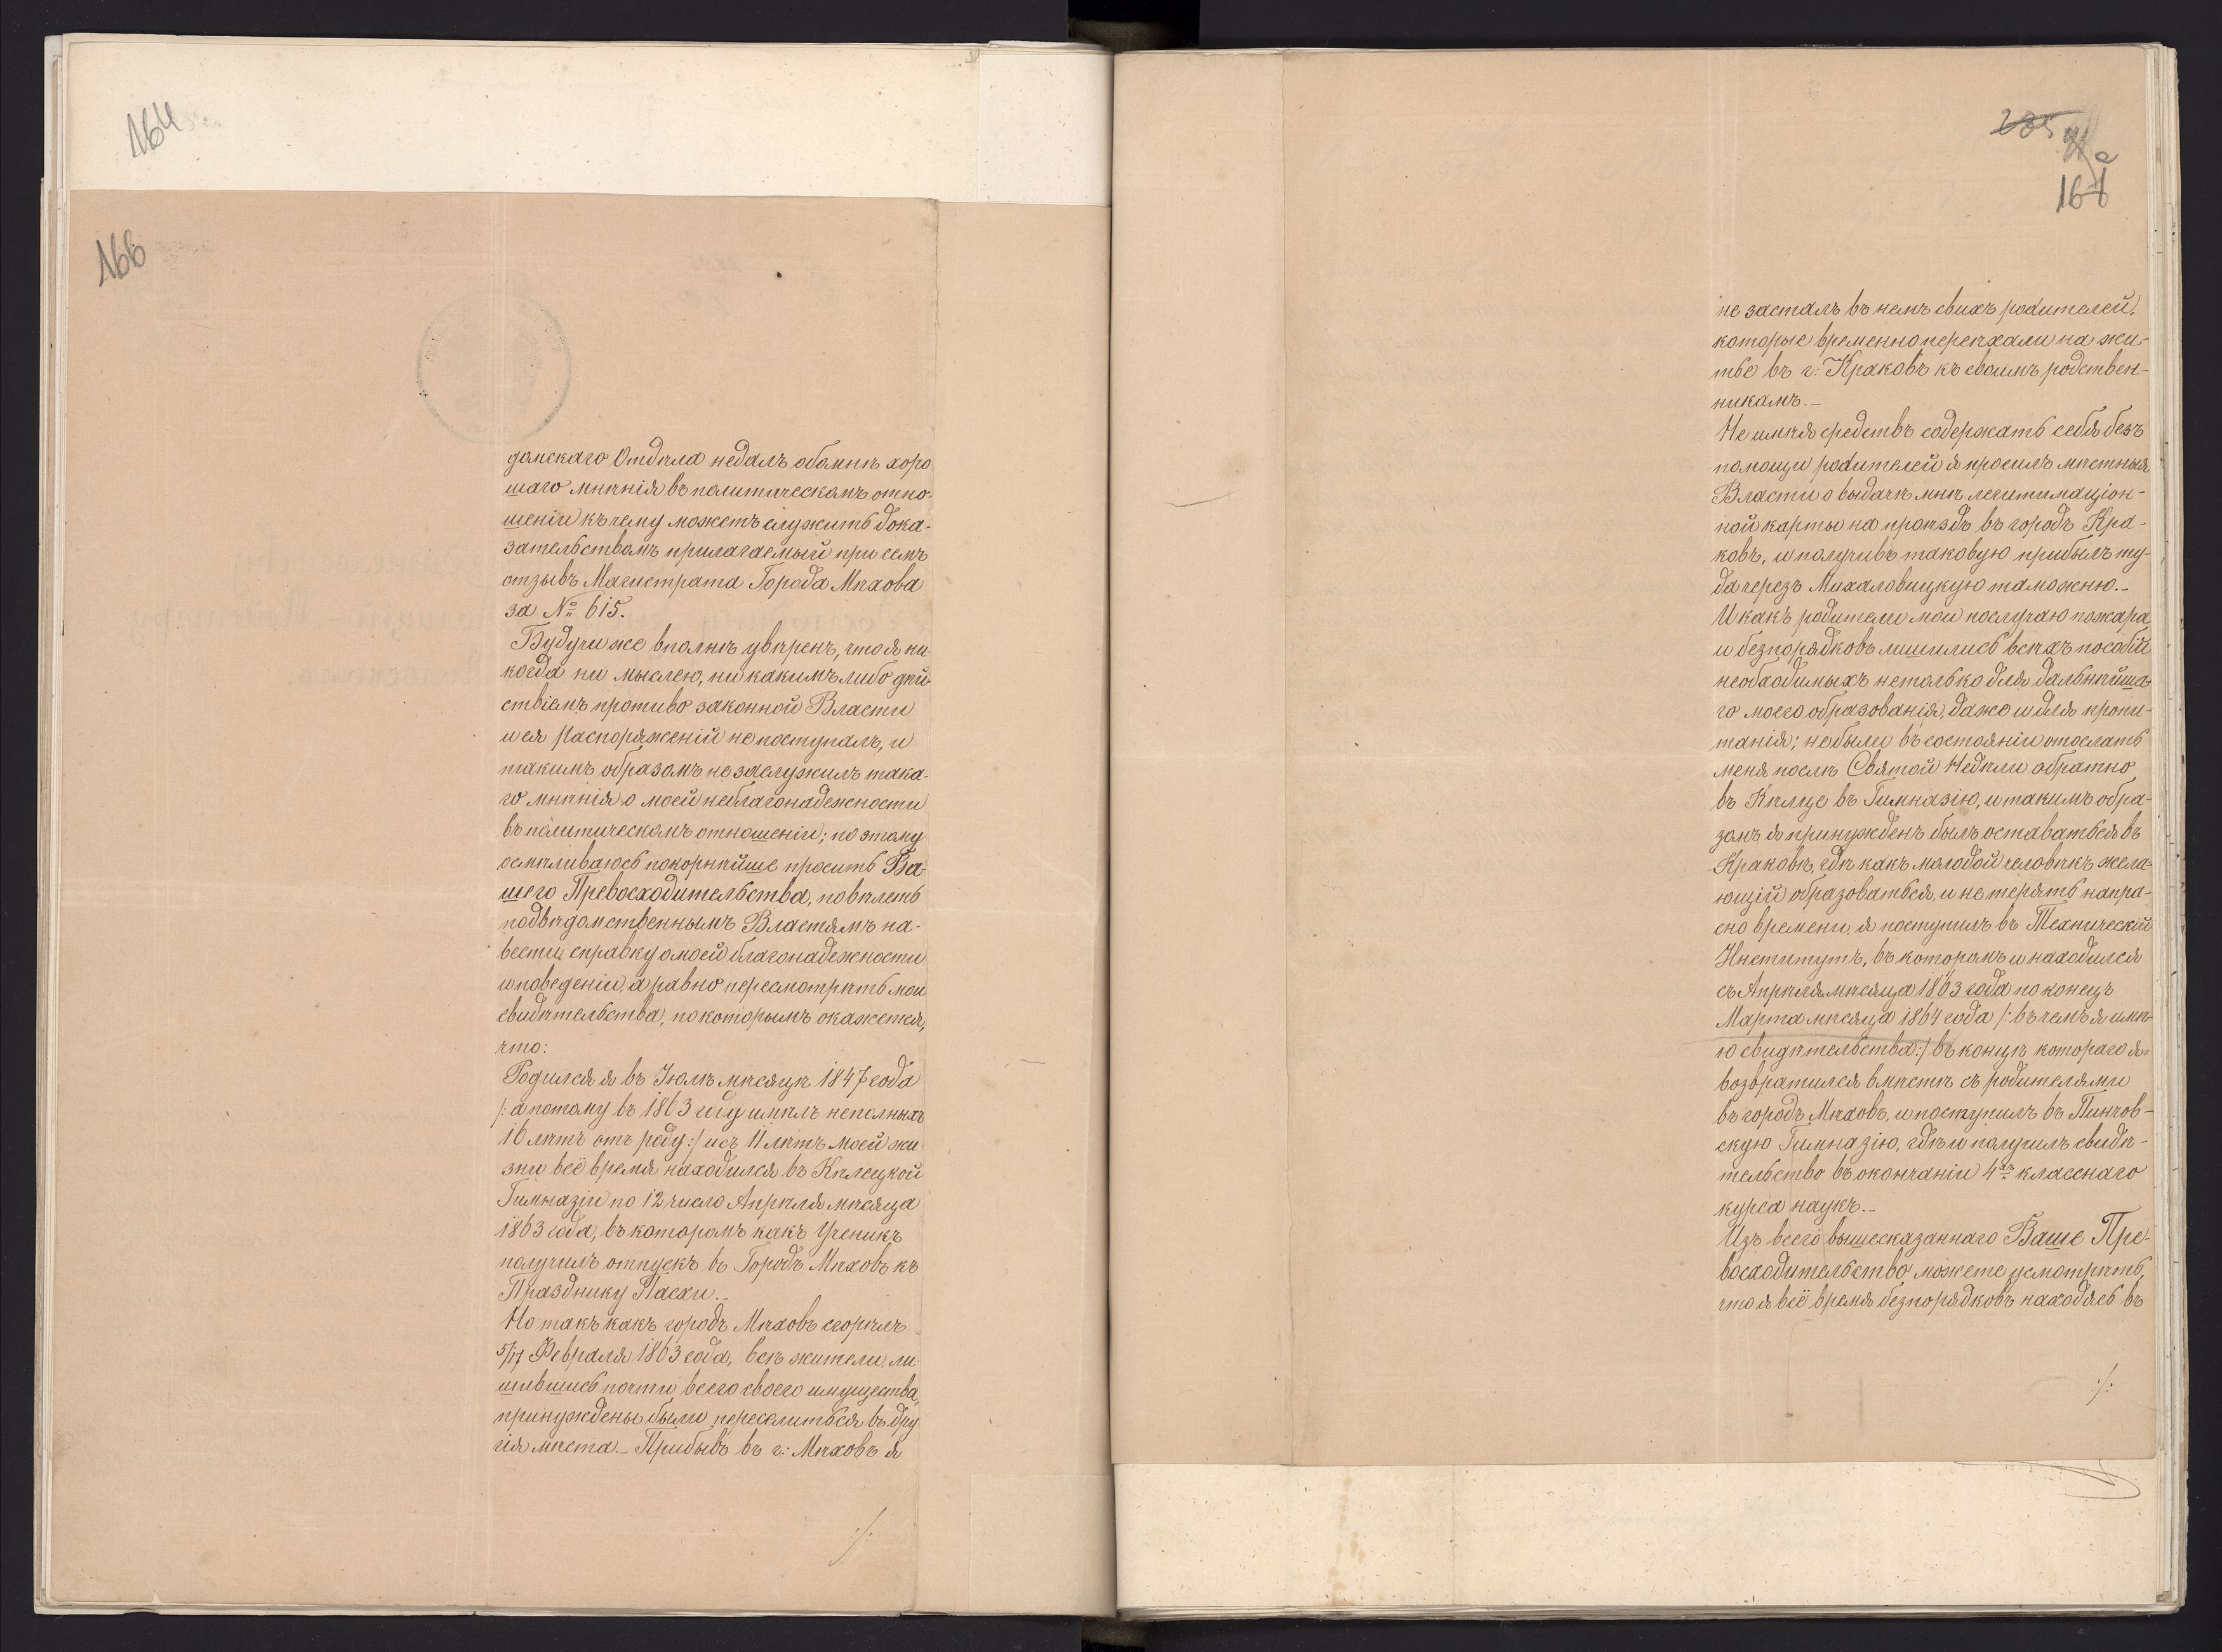 164
166
домскаго Отдѣла недалъ обомнѣ хоро
шаго мнѣнія въ политическомъ отно-
шеніи къ чему можетъ служить дока-
зательствомъ прилагаемый при семъ
отзывъ Магистрата Города Мѣхова
за № 615.
Будучи же вполнѣ увѣренъ, что я ни-
когда ни мыслею, ни какимъ либо дѣй-
ствіемъ противо законной Власти
и ея Распоряженій не поступалъ, и
такимъ образомъ не заслужилъ така-
го мнѣнія о моей неблагонадежности
въ политическомъ отношеніи; по этому
осмѣливаюсь покорнѣйше просить Ва-
шего Превосходительства, повѣлеть
подвѣдомственнымъ Властямъ на-
вести справку о моей благонадежности
и поведеніи, а равно пересмотрѣть мои
свидѣтельства, по которымъ окажется,
что:
Родился я въ Іюлѣ мѣсяцѣ 1847 года
/: а потому въ 1863 году имѣлъ неполныхъ
16 лѣтъ отъ роду :/ и съ 11 лѣтъ моей жи
зни всё время находился въ Кѣлецкой
Гимназіи по 12 число Апрѣля мѣсяца
1863 года, въ которомъ какъ Ученикъ
получилъ отпускъ въ Городъ Мѣховъ къ
Празднику Пасхи.–
Но такъ какъ городъ Мѣховъ сгорѣлъ
5/17 Февраля 1863 года, всѣ жители, ли
шившись почти всего своего имущества,
принуждены были переселиться въ дру
гія мѣста.– Прибывъ въ г: Мѣховъ я
:/:
235
161
не засталъ въ немъ свихъ родителей,
которые временно переѣхали на жи-
тье въ г: Краковъ къ своимъ родствен-
никамъ.–
Не имѣя средствъ содержать себя безъ
помощи родителей я просилъ мѣстныя
Власти о выдачѣ мнѣ легитимаціон-
ной карты на проѣздъ въ городъ Кра-
ковъ, и получивъ таковую прибылъ ту-
да черезъ Михаловицкую таможню.–
И какъ родители мои послучаю пожара
и безпорядковъ лишились всѣхъ пособій
необходимыхъ нетолько для дальнѣйша
го моего образованія, даже и для пропи-
танія; небыли въ состояніи отослать
меня послѣ Святой Недѣли обратно
въ Кѣлце въ Гимназію, и такимъ обра-
зомъ я принужденъ былъ оставаться въ
Краковѣ, гдѣ какъ молодой человѣкъ жела-
ющій образоваться, и не терять напра-
сно времени, я поступилъ въ Техническій
Институтъ, въ которомъ и находился
съ Апрѣля мѣсяца 1863 года по конецъ
Марта мѣсяца 1864 года /: въ чемъ я имѣ-
ю свидѣтельства :/ въ концѣ котораго я
возвратился вмѣстѣ съ родителями
въ городъ Мѣховъ, и поступилъ въ Пинчов-
скую Гимназію, гдѣ и получилъ свидѣ-
тельство въ окончаніи 4хъ класснаго
курса наукъ.–
Изъ всего вышесказаннаго Ваше Пре-
восходительство можете усмотрѣть,
что я всё время безпорядковъ находясь въ
:/: